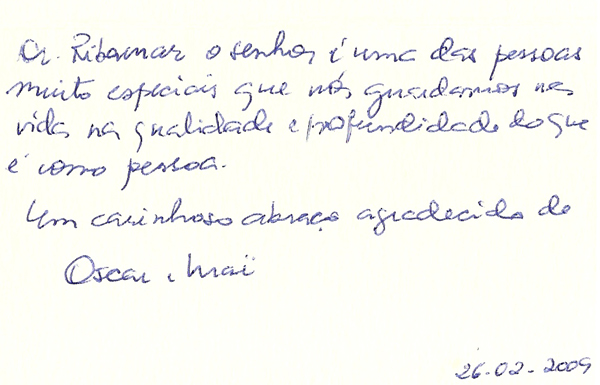 Dr. Ribamar o senhor é uma das pessoas
muito especiais que nós guardamos na
vida na qualidade e profundidade do que
é como pessoa.
Um carinhoso abraço agradecido de
Oscar e
26-02-2009